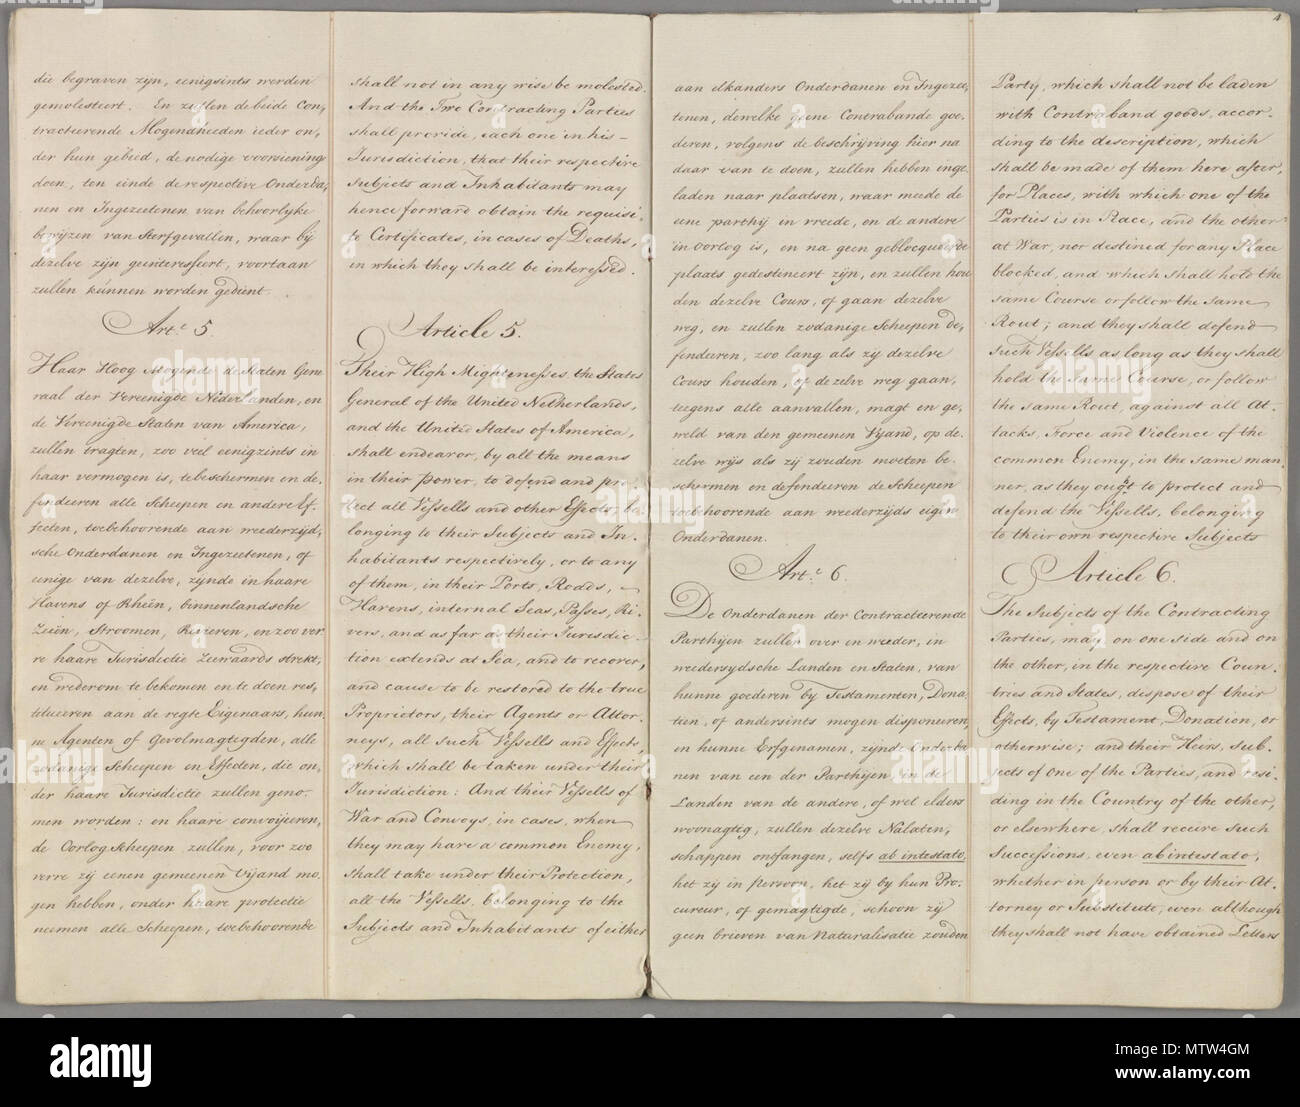 4
die begraven zyn, eenigsints werden
gemolesteert. En zullen de beide Con,
tracteerende Mogendheeden ieder on,
der hun gebied, de nodige voorsiening
doen, ten einde de respective Onderda,
nen en Ingezeetenen van behoorlyke
bewyzen van Sterfgevallen, waar by
dezelve zyn geinteresseert, voortaan
zullen kúnnen worden gedient.
Art.e 5.
Haar Hoog Mogende de Staten Gene
raal der Vereenigde Nederlanden, en
de Vereenigde Staten van America,
zullen tragten, zoo veel eenigzints in
haar vermogen is, te beschermen en de,
fendeeren alle Scheepen en andere Ef,
fecten, toebehoorende aan weederzyd,
sche Onderdanen en Ingezeetenen, of
eenige van dezelve, zynde in haare
Havens of Rheën, binnenlandsche
Zeeën, Stroomen, Rivieren, en zoo ver
re haare Jurisdictie zeewaards strekt,
en wederom te bekomen en te doen res,
titueeren aan de regte Eigenaars, hun,
ne Agenten of Gevolmagtigden, alle
zodanige Scheepen en Effecten, die on,
der haare Jurisdictie zullen geno-
men worden: en haare convoijeeren,
de Oorlog Scheepen zullen, voor zoo
verre zy eenen gemeenen Vyand mo,
gen hebben, onder haare protectie
neemen alle Scheepen, toebehoorende
shall not in any wise be molested.
And the Two Contracting Parties
shall provide, each one in his
Jurisdiction, that their respective
Subjects and Inhabitants may
hence forward obtain the requisi,
te Certificates, in cases of Deaths,
in which they shall be interessed.
Article 5.
Their High Mightenesses the States
General of the United Netherlands,
and the United States of America,
shall endeavor, by all the means
in their power, to defend and pro,
tect all Vessells and other Effects, be,
longing to their Subjects and In,
habitants respectively, or to any
of them, in their Ports, Roads,
Havens, internal Seas, Passes, Ri,
vers, and as far as their Jurisdic,
tion extends at Sea, and to recover,
and cause to be restored to the true
Proprietors, their Agents or Attor,
neys, all such Vessells and Effects,
which shall be taken under their
Jurisdiction: And their Vessells of
War and Convoys, in cases, when
they may have a common Enemy,
shall take under their Protection,
all the Vessells, belonging to the
Subjects and Inhabitants of either
aan elkanders Onderdanen en Ingezee,
tenen, dewelke geene Contrabande goe,
deren, volgens de beschryving hier na
daar van te doen, zullen hebben inge,
laden naar plaatsen, waar meede de
eene parthy in vreede, en de andere
in oorlog is, en na geen geblocqueerde
plaats gedestineert zyn, en zullen hou
den dezelve Cours, of gaan dezelve
weg, en zullen zodanige Scheepen de,
fendeeren, zoo lang als zy dezelve
Cours houden, of dezelve weg gaan,
teegens alle aanvallen, magt en ge,
weld van den gemeenen Vyand, op de,
zelve wys als zy zouden moeten be,
schermen en defendeeren de Scheepen
toebehoorende aan weederzyds eigen
Onderdanen.
Art.e 6.
De Onderdanen der Contracteerende
Parthyen zullen over en weeder, in
weedersydsche Landen en Staten, van
hunne goederen by Testamenten, Dona,
tien, of andersints mogen disponeeren,
en hunne Erfgenamen, zynde onderda,
nen van een der Parthyen in de
Landen van de andere, of wel elders
woonagtig, zullen dezelve Nalaten,
schappen ontfangen, selfs ab intestato,
het zy in persoon, het zy by hun Pro,
cureur, of gemagtigde, schoon zy
geen brieven van Naturalisatie zouden
Party, which shall not be laden
with Contraband goods, accor,
ding to the description, which
shall be made of them here after,
for Places, with which one of the
Parties is in Peace, and the other
at War, nor destined for any Place
blocked, and which shall hold the
same Course or follow the same
Rout; and they shall defend
such Vessells as long as they shall
hold the same Course, or follow
the same Rout, against all At,
tacks, Force and Violence of the
common Enemy, in the same man,
ner, as they ought to protect and
defend the Vessells, belonging
to their own respective Subjects
Article 6.
The Subjects of the Contracting
Parties, may on one side and on
the other, in the respective Coun,
tries and States, dispose of their
Effects, by Testament, Donation, or
otherwise; and their Heirs, sub,
jects of one of the Parties, and resi,
ding in the Country of the other,
or elsewhere, shall receive such
Successions, even ab intestato,
whether in person or by their At,
torney or Substitute, even although
they shall not have obtained Letters
alamy
Image ID: MTW4GM
www.alamy.com